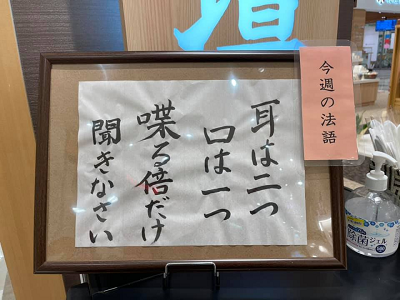 今週の法語
耳は二つ
口は一つ
喋る倍だけ
聞きなさい
除菌ジェル